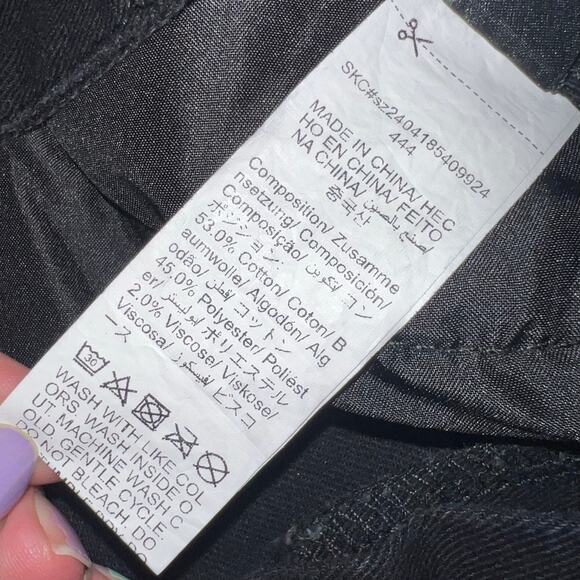 SKC#sz2404185409924
444
MADE IN CHINA/ HEC
HO EN CHINA/ FEITO
NA CHINA/ صنع بالصين/
중국산
Composition/ Zusamme
nsetzung/ Composición/
Composição/ التكوين/ コン
ポジション
53.0% Cotton/ Coton/ B
aumwolle/ Algodón/ Alg
odão/ قطن/ コットン
45.0% Polyester/ Poliést
er/ بوليستر/ ポリエステル
2.0% Viscose/ Viskose/
Viscosa/ فيسكوز/ ビスコ
ース
30
WASH WITH LIKE COL
ORS. WASH INSIDE O
UT. MACHINE WASH C
OLD. GENTLE CYCLE.
DO NOT BLEACH. DO